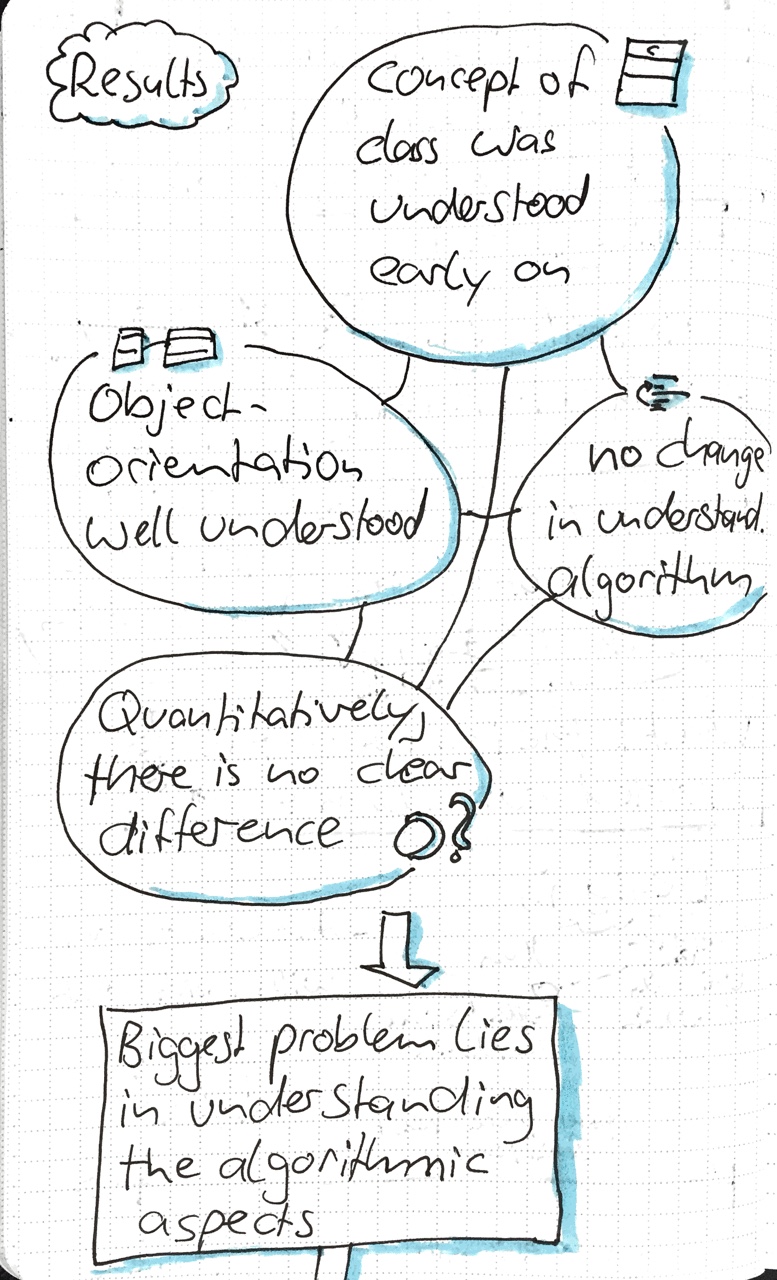 Results
Concept of
class was
understood
early on
Object-
orientation
well understood
no change
in understand.
algorithm
Quantitatively,
there is no clear
difference O?
Biggest problem lies
in understanding
the algorithmic
aspects